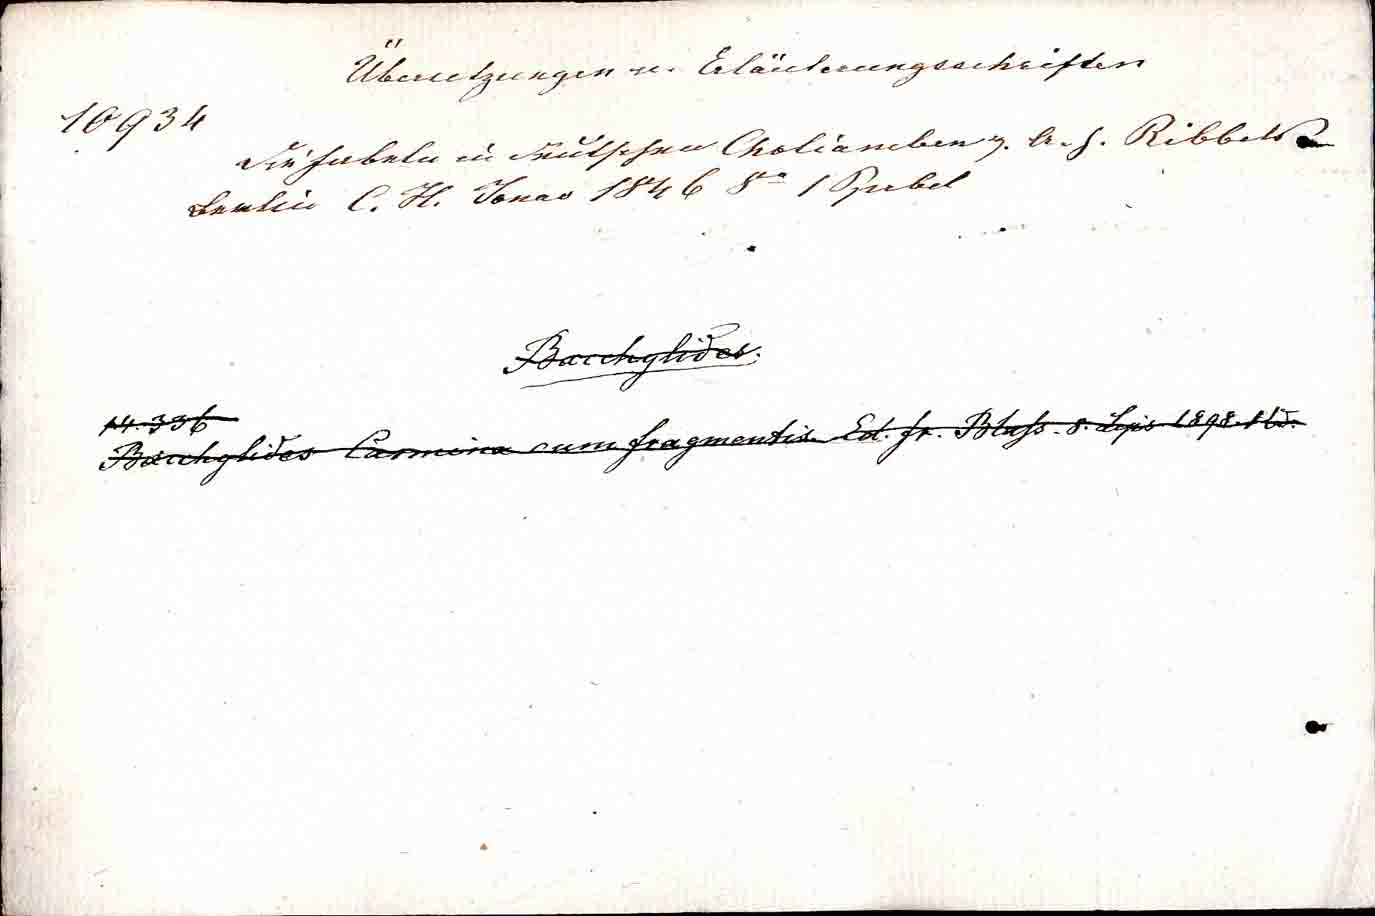 Übersetzungen u. Erläuterungsschriften
10934
Die Fabeln in deutschen Choliamben v. W. F. Ribbek
Berlin C. H. Jonas 1846 8°
Bacchylides.
14.336
Bacchylides Carmina cum fragmentis Ed. Fr. Blass. 8. Lips 1898. 1 Bd.